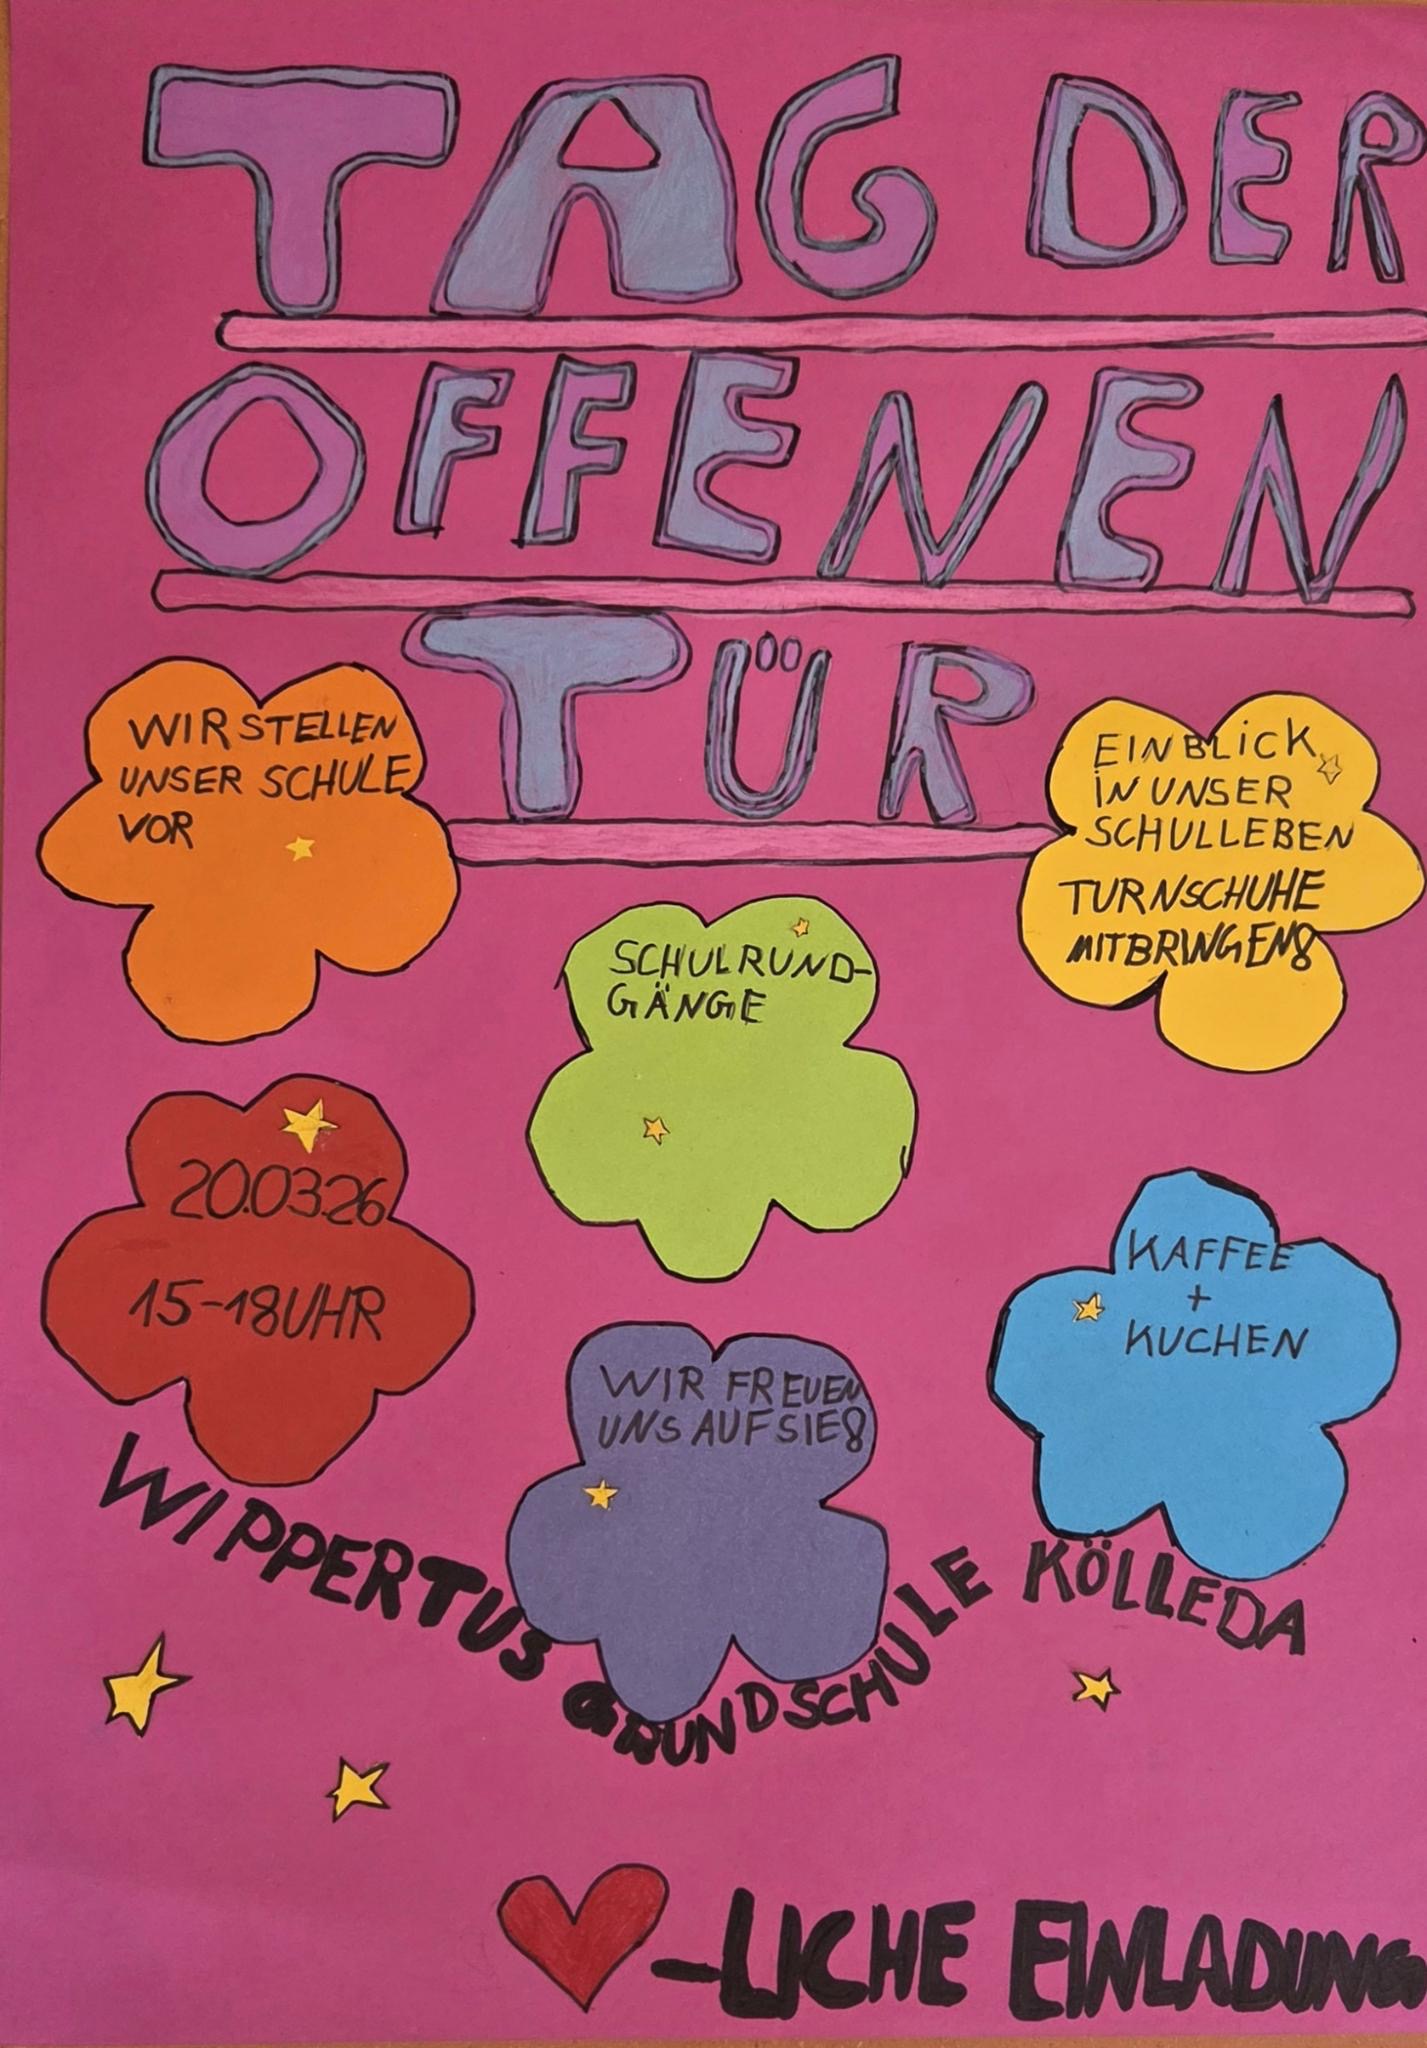 TAG DER
OFFENEN
TÜR
WIR STELLEN
UNSER SCHULE
VOR
EINBLiCK
iN UNSER
SCHULLEBEN
TURNSCHUHE
MITBRINGEN!
SCHULRUND-
GÄNGE
20.03.26
15-18UHR
KAFFEE
+
KUCHEN
WIR FREUEN
UNS AUF SIE!
WIPPERTUS GRUNDSCHULE KÖLLEDA
-LICHE EINLADUNG